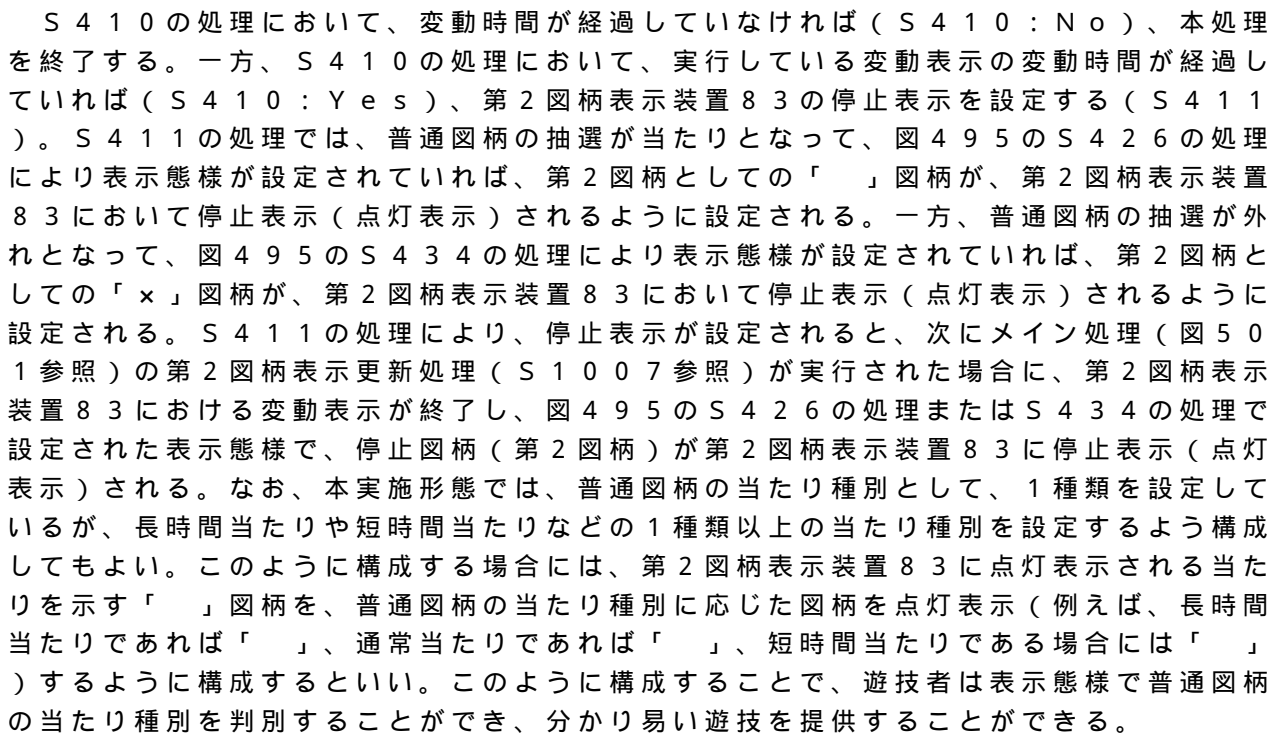 Ｓ４１０の処理において、変動時間が経過していなければ（Ｓ４１０：Ｎｏ）、本処理
を終了する。一方、Ｓ４１０の処理において、実行している変動表示の変動時間が経過し
ていれば（Ｓ４１０：Ｙｅｓ）、第２図柄表示装置８３の停止表示を設定する（Ｓ４１１
）。Ｓ４１１の処理では、普通図柄の抽選が当たりとなって、図４９５のＳ４２６の処理
により表示態様が設定されていれば、第２図柄としての「　」図柄が、第２図柄表示装置
８３において停止表示（点灯表示）されるように設定される。一方、普通図柄の抽選が外
れとなって、図４９５のＳ４３４の処理により表示態様が設定されていれば、第２図柄と
しての「×」図柄が、第２図柄表示装置８３において停止表示（点灯表示）されるように
設定される。Ｓ４１１の処理により、停止表示が設定されると、次にメイン処理（図５０
１参照）の第２図柄表示更新処理（Ｓ１００７参照）が実行された場合に、第２図柄表示
装置８３における変動表示が終了し、図４９５のＳ４２６の処理またはＳ４３４の処理で
設定された表示態様で、停止図柄（第２図柄）が第２図柄表示装置８３に停止表示（点灯
表示）される。なお、本実施形態では、普通図柄の当たり種別として、１種類を設定して
いるが、長時間当たりや短時間当たりなどの１種類以上の当たり種別を設定するよう構成
してもよい。このように構成する場合には、第２図柄表示装置８３に点灯表示される当た
りを示す「　」図柄を、普通図柄の当たり種別に応じた図柄を点灯表示（例えば、長時間
当たりであれば「　」、通常当たりであれば「　」、短時間当たりである場合には「　」
）するように構成するといい。このように構成することで、遊技者は表示態様で普通図柄
の当たり種別を判別することができ、分かり易い遊技を提供することができる。